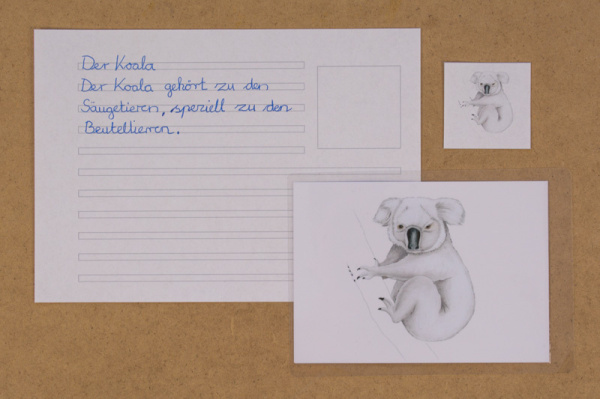 Der Koala
Der Koala gehört zu den
Säugetieren, speziell zu den
Beuteltieren.